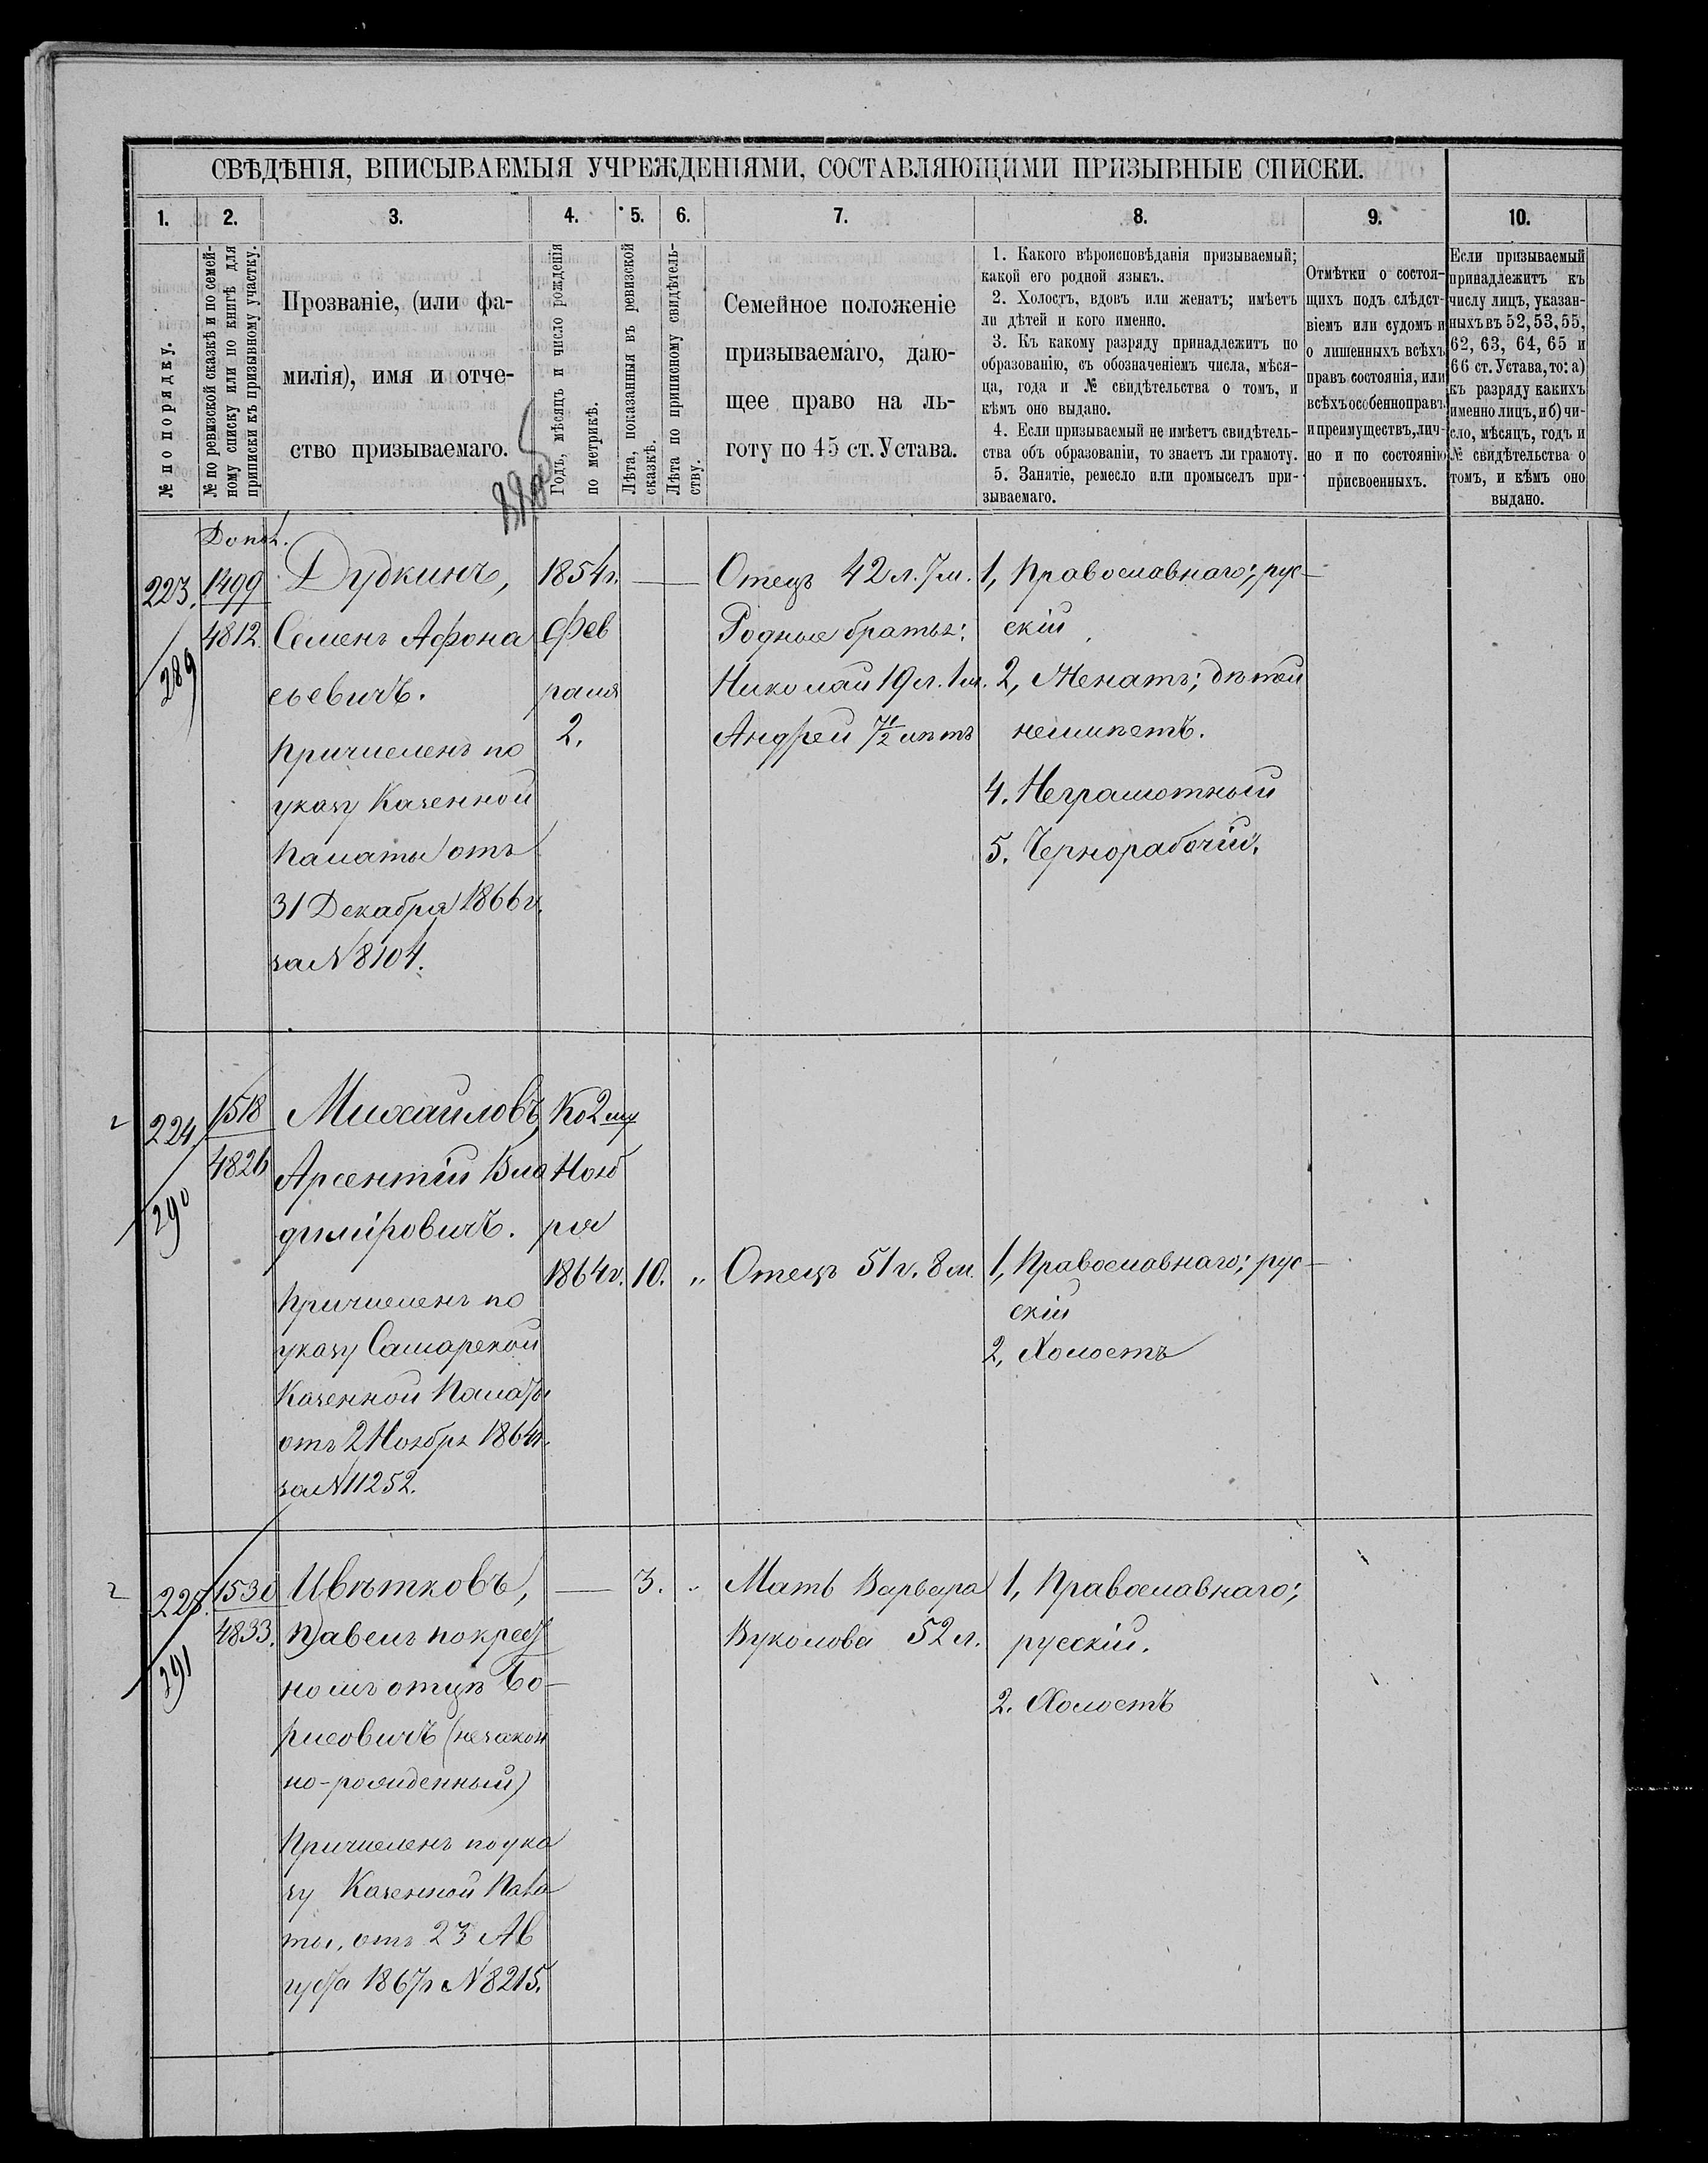 СВѢДѢНІЯ, ВПИСЫВАЕМЫЯ УЧРЕЖДЕНІЯМИ, СОСТАВЛЯЮЩИМИ ПРИЗЫВНЫЕ СПИСКИ.
1.
2.
3.
4.
5.
6.
7.
8.
9.
10.
№ по порядку.
№ по ревизской сказкѣ и по семей-
ному списку или по книгѣ для
приписки къ призывному участку.
Прозваніе, (или фа-
милія), имя и отче-
ство призываемаго.
Годъ, мѣсяцъ и число рожденія
по метрикѣ.
Лѣта, показанныя въ ревизской
сказкѣ.
Лѣта по приписному свидѣтель-
ству.
Семейное положеніе
призываемаго, даю-
щее право на ль-
готу по 45 ст. Устава.
1. Какого вѣроисповѣданія призываемый;
какой его родной языкъ.
2. Холостъ, вдовъ или женатъ; имѣетъ
ли дѣтей и кого именно.
3. Къ какому разряду принадлежитъ по
образованію, съ обозначеніемъ числа, мѣся-
ца, года и № свидѣтельства о томъ, и
кѣмъ оно выдано.
4. Если призываемый не имѣетъ свидѣтель-
ства объ образованіи, то знаетъ ли грамоту.
5. Занятіе, ремесло или промыселъ при-
зываемаго.
Отмѣтки о состоя-
щихъ подъ слѣдст-
віемъ или судомъ и
о лишенныхъ всѣхъ
правъ состоянія, или
всѣхъ особенно правъ
и преимуществъ, лич-
но и по состоянію
присвоенныхъ.
Если призываемый
принадлежитъ къ
числу лицъ, указан-
ныхъ въ 52, 53, 55,
62, 63, 64, 65 и
66 ст. Устава, то: а)
къ разряду какихъ
именно лицъ, и б) чи-
сло, мѣсяцъ, годъ и
№ свидѣтельства о
томъ, и кѣмъ оно
выдано.
223.
289
Допол.
1499
4812.
Дудкинъ,
Семенъ Афона
сьевичъ.
Причисленъ по
указу Казенной
Палаты отъ
31 Декабря 1866 г.
за N 8104.
1854 г.
Фев
раля
2.
Отецъ 42 л. 7 м.
Родные братья:
Николай 19 л. 1 м.
Андрей 7 1/2 лѣтъ
1, Православнаго; рус-
скій
2, Женатъ; дѣтей
неимѣетъ.
4. Неграмотный
5. Чернорабочій.
224.
290
1518
4826
Михайловъ,
Арсентій Вла
диміровичъ.
Причисленъ по
указу Самарской
Казенной Палаты
отъ 2 Ноября 1864 г.
за N 11252.
Ко 2му
Нояб
ря
1864 г.
10.
„
Отецъ 51 г. 8 м.
1, Православнаго; рус-
скій
2, Холостъ
225.
291
1530
4833.
Цвѣтковъ,
Павелъ по крест
номъ отцѣ Бо-
рисовичъ (незакон
но-рожденный)
Причисленъ по ука
зу Казенной Пала
ты, отъ 23 Ав
густа 1867 г N 8215.
3.
„
Мать Варвара
Вуколова 52 л.
1, Православнаго;
русскій.
2. Холостъ